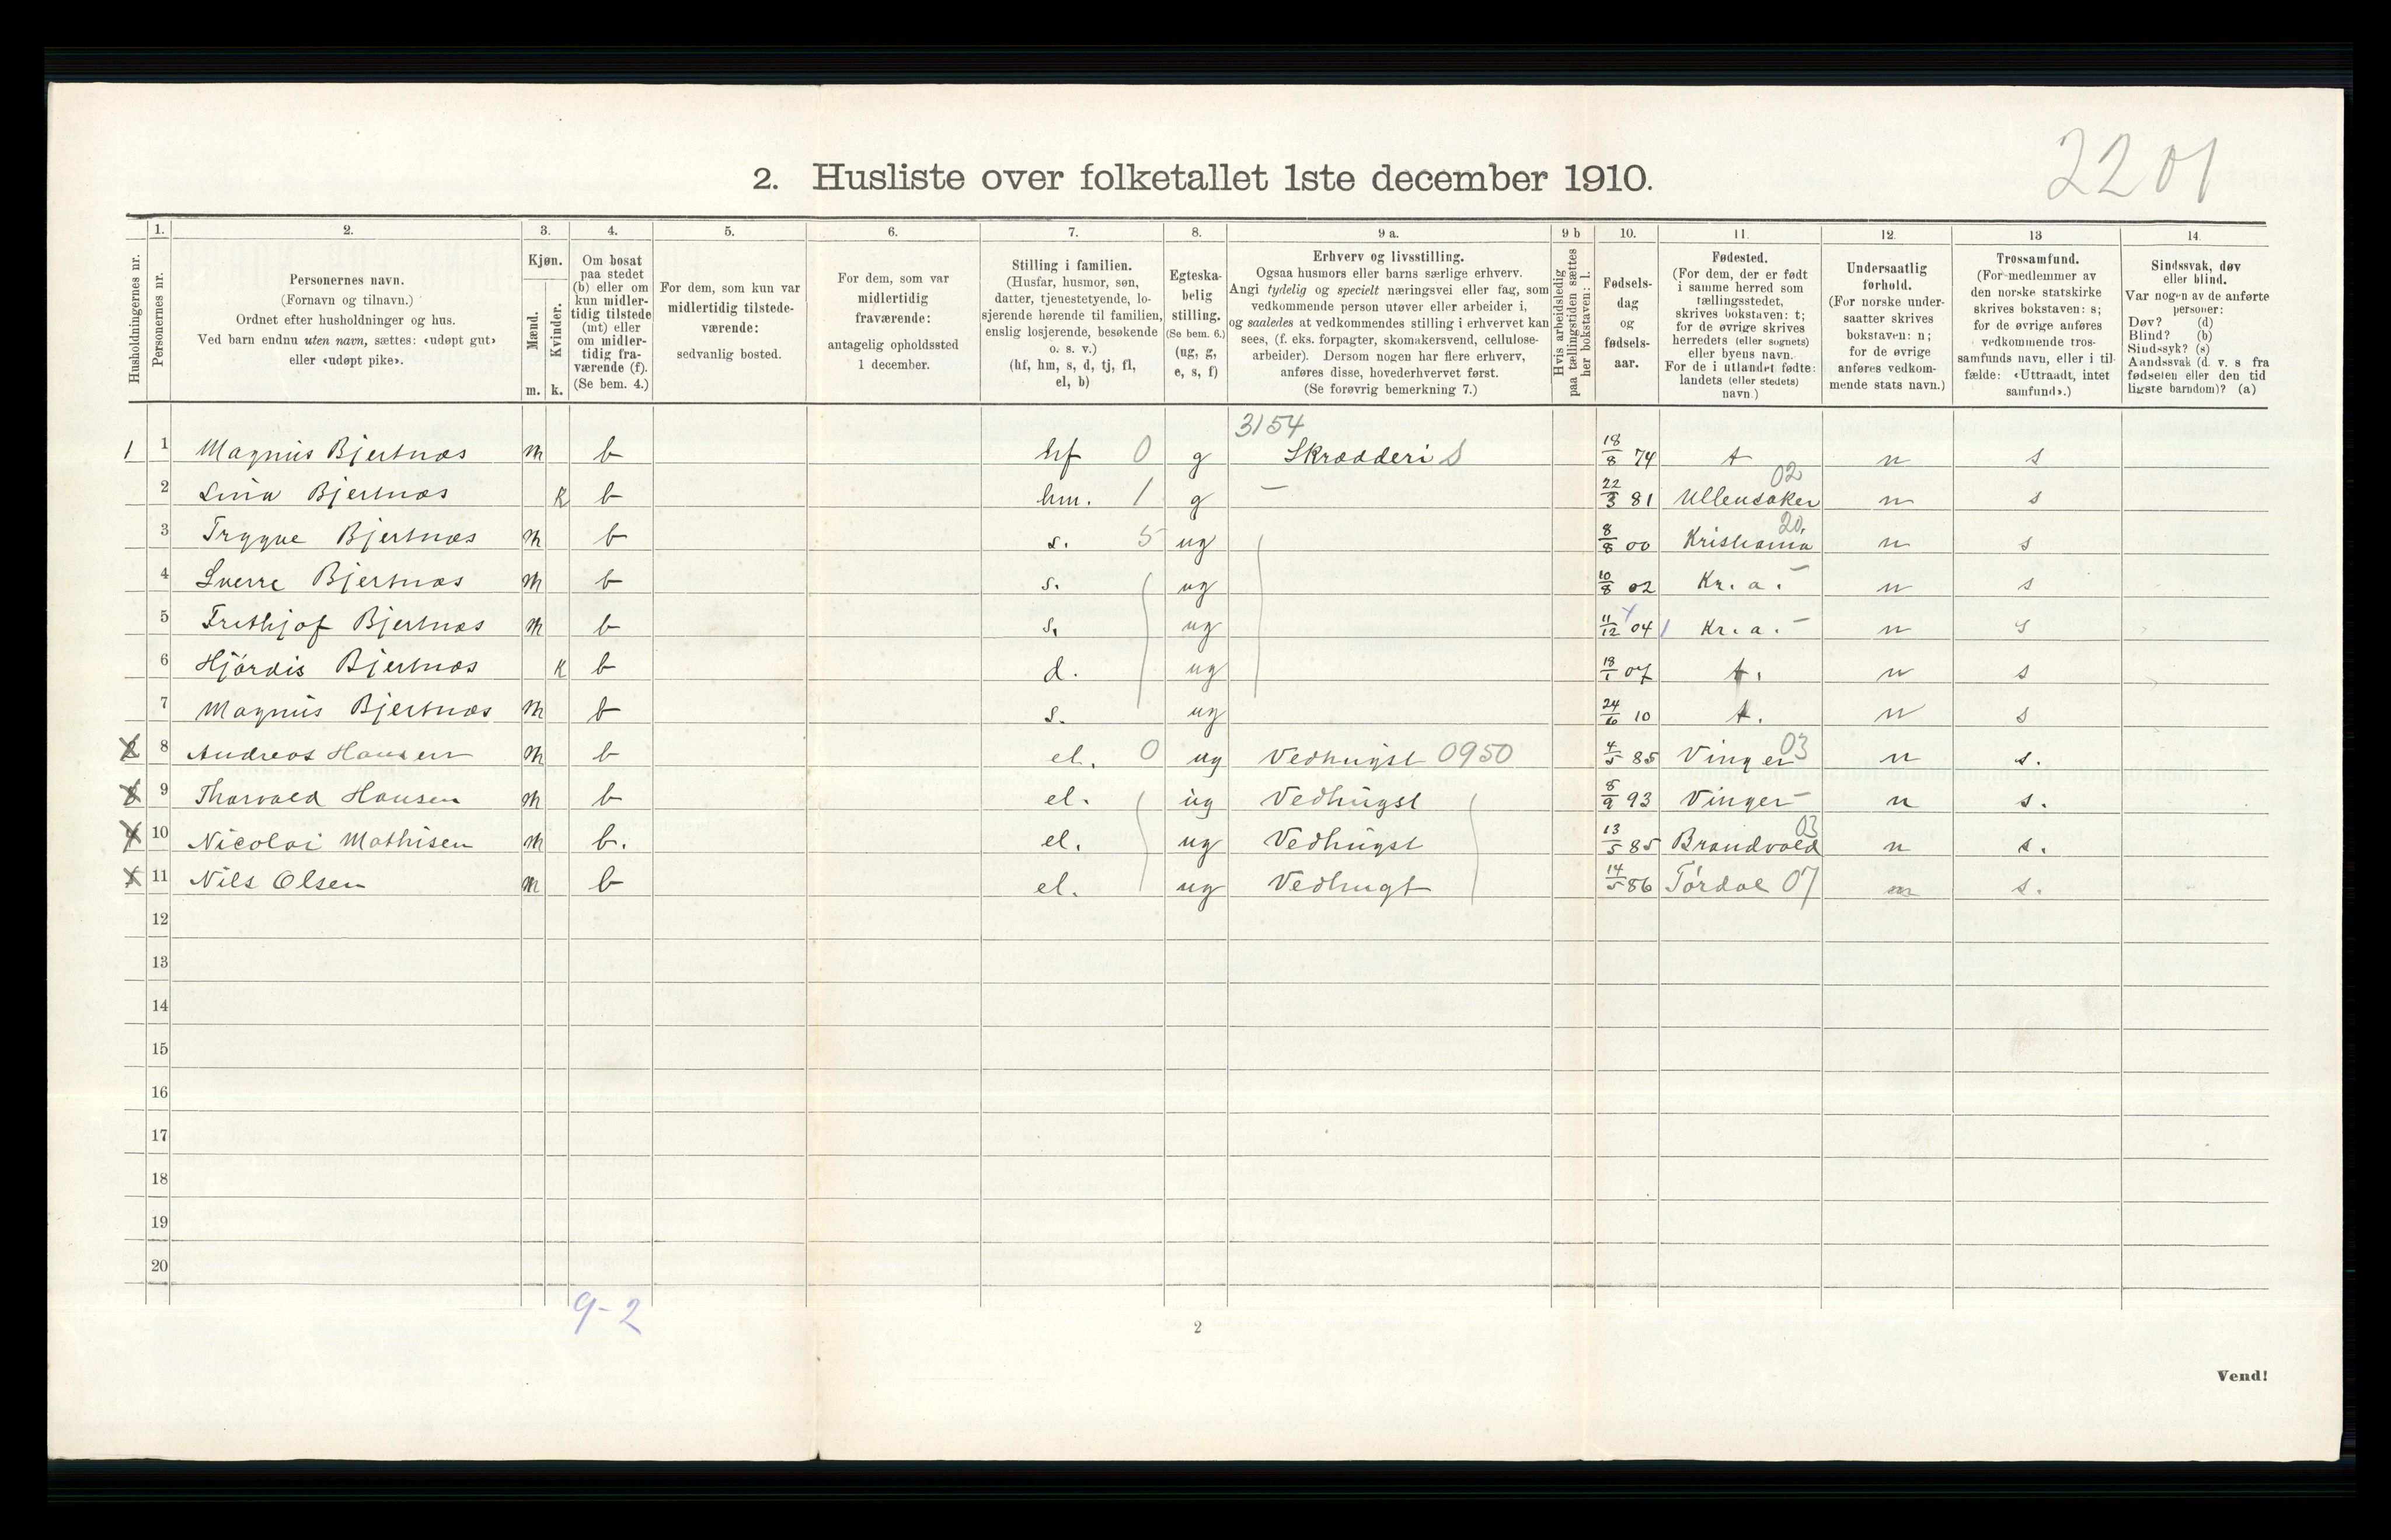 2201
2. Husliste over folketallet 1ste december 1910.
Husholdningernes nr.
1.
Personernes nr.
2.
Personernes navn.
(Fornavn og tilnavn.)
Ordnet efter husholdninger og hus.
Ved barn endnu uten navn, sættes: «udøpt gut»
eller «udøpt pike».
3.
Kjøn.
Mænd.
Kvinder.
m. k.
4.
Om bosat
paa stedet
(b) eller om
kun midler-
tidig tilstede
(mt) eller
om midler-
tidig fra-
værende (f).
(Se bem. 4.)
5.
For dem, som kun var
midlertidig tilstede-
værende:
sedvanlig bosted.
6.
For dem, som var
midlertidig
fraværende:
antagelig opholdssted
1 december.
7.
Stilling i familien.
(Husfar, husmor, søn,
datter, tjenestetyende, lo-
sjerende hørende til familien,
enslig losjerende, besøkende
o. s. v.)
(hf, hm, s, d, tj, fl,
el, b)
8.
Egteska-
belig
stilling.
(Se bem. 6.)
(ug, g,
e, s, f)
9 a.
Erhverv og livsstilling.
Ogsaa husmors eller barns særlige erhverv.
Angi tydelig og specielt næringsvei eller fag, som
vedkommende person utøver eller arbeider i,
og saaledes at vedkommendes stilling i erhvervet kan
sees, (f. eks. forpagter, skomakersvend, cellulose-
arbeider). Dersom nogen har flere erhverv,
anføres disse, hovederhvervet først.
(Se forøvrig bemerkning 7.)
9 b
Hvis arbeidsledig
paa tællingstiden sættes
her bokstaven: l.
10.
Fødsels-
dag
og
fødsels-
aar.
11.
Fødested.
(For dem, der er født
i samme herred som
tællingsstedet,
skrives bokstaven: t;
for de øvrige skrives
herredets (eller sognets)
eller byens navn.
For de i utlandet fødte:
landets (eller stedets)
navn.)
12.
Undersaatlig
forhold.
(For norske under-
saatter skrives
bokstaven: n;
for de øvrige
anføres vedkom-
mende stats navn.)
13
Trossamfund.
(For medlemmer av
den norske statskirke
skrives bokstaven: s;
for de øvrige anføres
vedkommende tros-
samfunds navn, eller i til-
fælde: «Uttraadt, intet
samfund».)
14.
Sindssvak, døv
eller blind.
Var nogen av de anførte
personer:
Døv? (d)
Blind? (b)
Sindssyk? (s)
Aandssvak (d. v. s fra
fødselen eller den tid
ligste barndom)? (a)
3154
1 1 Magnus Bjertnæs m b hf 0 g Skrædderi S 18/8 74 t n s
2 Lina Bjertnæs k b hm. 1 g — 22/3 81 Ullensaker 02 n s
3 Trygve Bjertnæs m b s. 5 ug 8/8 00 Kristiania 20. n s
4 Sverre Bjertnæs m b s. ug 10/8 02 Kr. a. – n s
5 Frithjof Bjertnæs m b s. ug 11/12 04 Kr. a. – n s
6 Hjørdis Bjertnæs k b d. ug 18/1 07 t. n s
7 Magnus Bjertnæs m b s. ug 24/6 10 t. n s
2 8 Andreas Hansen m b el. 0 ug Vedhugst 0950 4/5 85 Vinger 03 n s.
3 9 Thorvald Hansen m b el. ug Vedhugst 8/9 93 Vinger – n s.
4 10 Nicolai Mathisen m b. el. ug Vedhugst 13/5 85 Brandvold 03 n s.
11 Nils Olsen m b el. ug Vedhugt 14/5 86 Tördal 07 n s.
12
13
14
15
16
17
18
19
20
9-2
2
Vend!